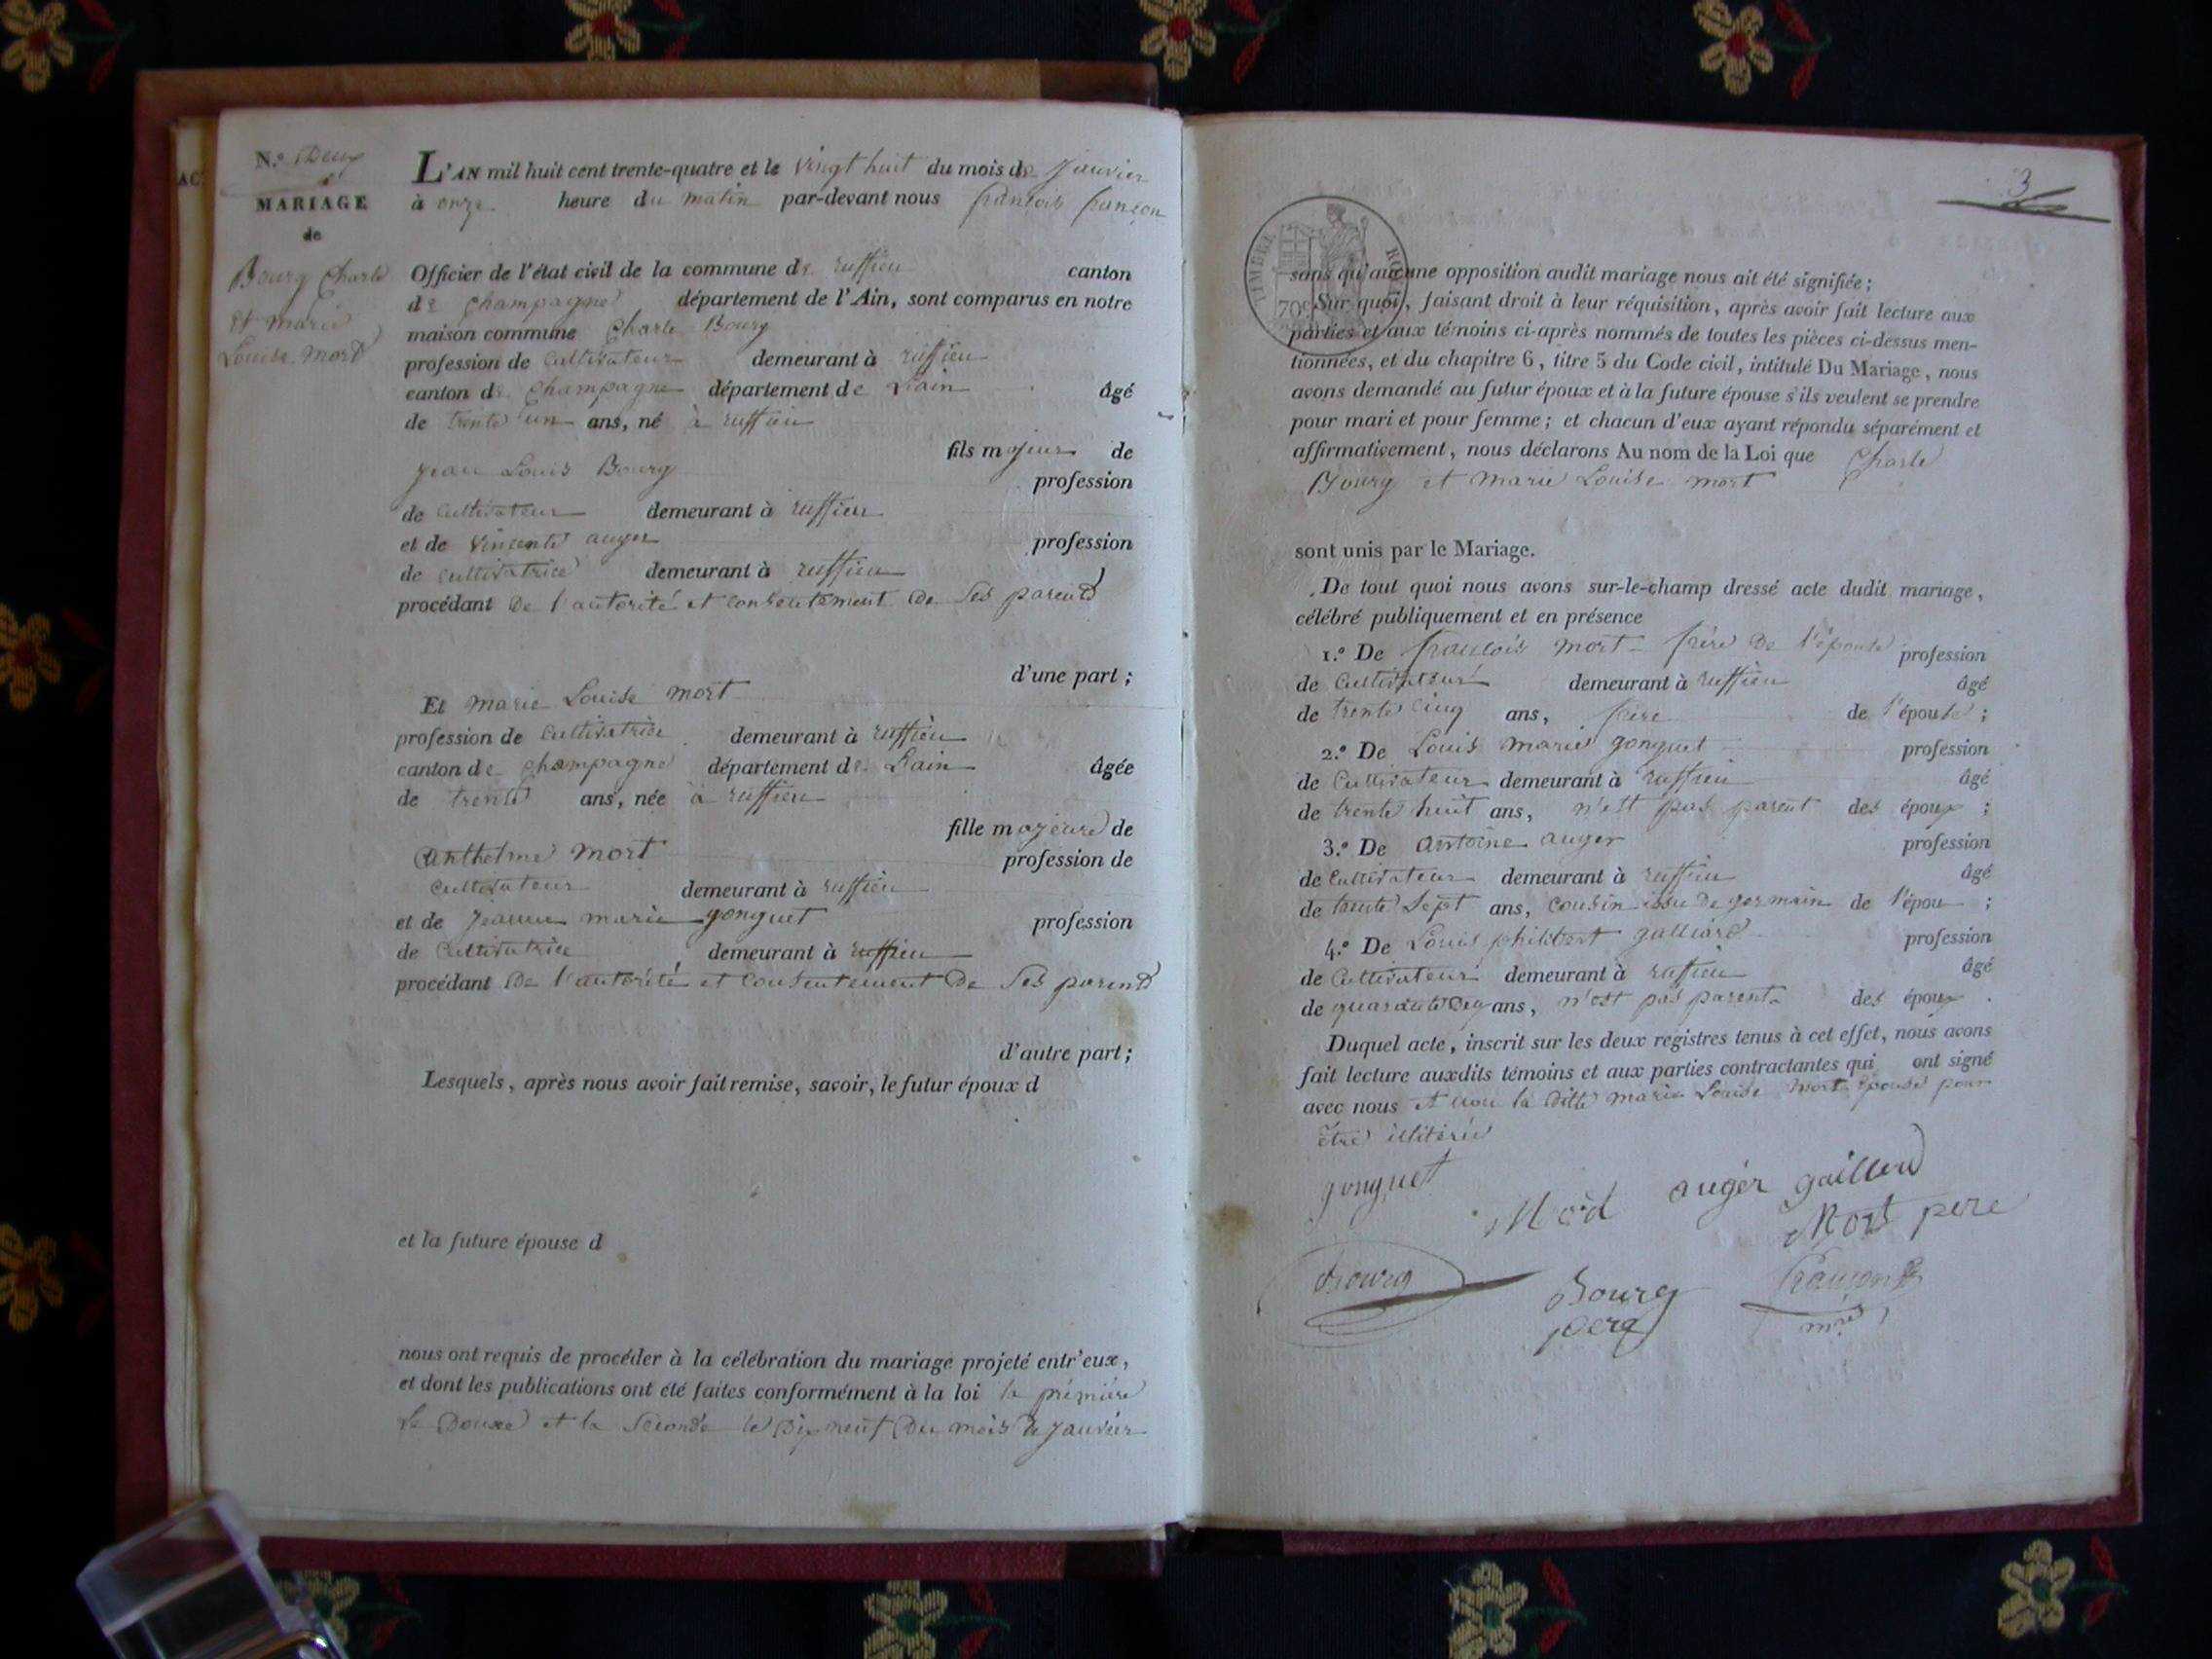 AC
N.º Deux
MARIAGE
de
Bourg Charle
et marie
Louise mort
L'AN mil huit cent trente-quatre et le vingt huit du mois de Janvier
à onze heure du matin par-devant nous françois françon
Officier de l'état civil de la commune de ruffieu canton
de Champagne département de l'Ain, sont comparus en notre
maison commune Charle Bourg
profession de Cultivateur demeurant à ruffieu
canton de Champagne département de L'ain âgé
de trente un ans, né à ruffieu
fils majeur de
jean Louis Bourg profession
de Cultivateur demeurant à ruffieu
et de vincente auger profession
de cultivatrice demeurant à ruffieu
procédant De l'autorité et consentement de ses parend
d'une part ;
Et marie Louise mort
profession de Cultivatrice demeurant à ruffieu
canton de Champagne département de L'ain âgée
de trente ans, née à ruffieu
fille majeure de
anthelme mort profession de
Cultivateur demeurant à ruffieu
et de jeanne marie gonguet profession
de Cultivatrice demeurant à ruffieu
procédant De l'autorité et consentement de ses parend
d'autre part ;
Lesquels, après nous avoir fait remise, savoir, le futur époux d
et la future épouse d
nous ont requis de procéder à la célébration du mariage projeté entr'eux,
et dont les publications ont été faites conformément à la loi la prémière
Le Douze et la seconde le Dix neuf Du mois de janvier
3
TIMBRE ROYAL
70c
sans qu'aucune opposition audit mariage nous ait été signifiée ;
Sur quoi, faisant droit à leur réquisition, après avoir fait lecture aux
parties et aux témoins ci-après nommés de toutes les pièces ci-dessus men-
tionnées, et du chapitre 6, titre 5 du Code civil, intitulé Du Mariage, nous
avons demandé au futur époux et à la future épouse s'ils veulent se prendre
pour mari et pour femme ; et chacun d'eux ayant répondu séparément et
affirmativement, nous déclarons Au nom de la Loi que Charle
Bourg et marie Louise mort
sont unis par le Mariage.
De tout quoi nous avons sur-le-champ dressé acte dudit mariage,
célébré publiquement et en présence
1.º De françois mort frère de l'épouse profession
de Cultivateur demeurant à ruffieu âgé
de trente cinq ans, frère de l'épouse ;
2.º De Louis marie gonguet profession
de Cultivateur demeurant à ruffieu âgé
de trente huit ans, n'est pas parent des époux ;
3.º De antoine auger profession
de Cultivateur demeurant à ruffieu âgé
de trente sept ans, cousin issu de germain de l'épou ;
4.º De Louis philibert galliard profession
de Cultivateur demeurant à ruffieu âgé
de quarante Deux ans, n'est pas parent des époux .
Duquel acte, inscrit sur les deux registres tenus à cet effet, nous avons
fait lecture auxdits témoins et aux parties contractantes qui ont signé
avec nous et non la ditte marie Louise mort épouse pour
être illitérée
gonguet
Mord auger gaillard
Mort pere
Bourg
Bourg
pere
françon
mre